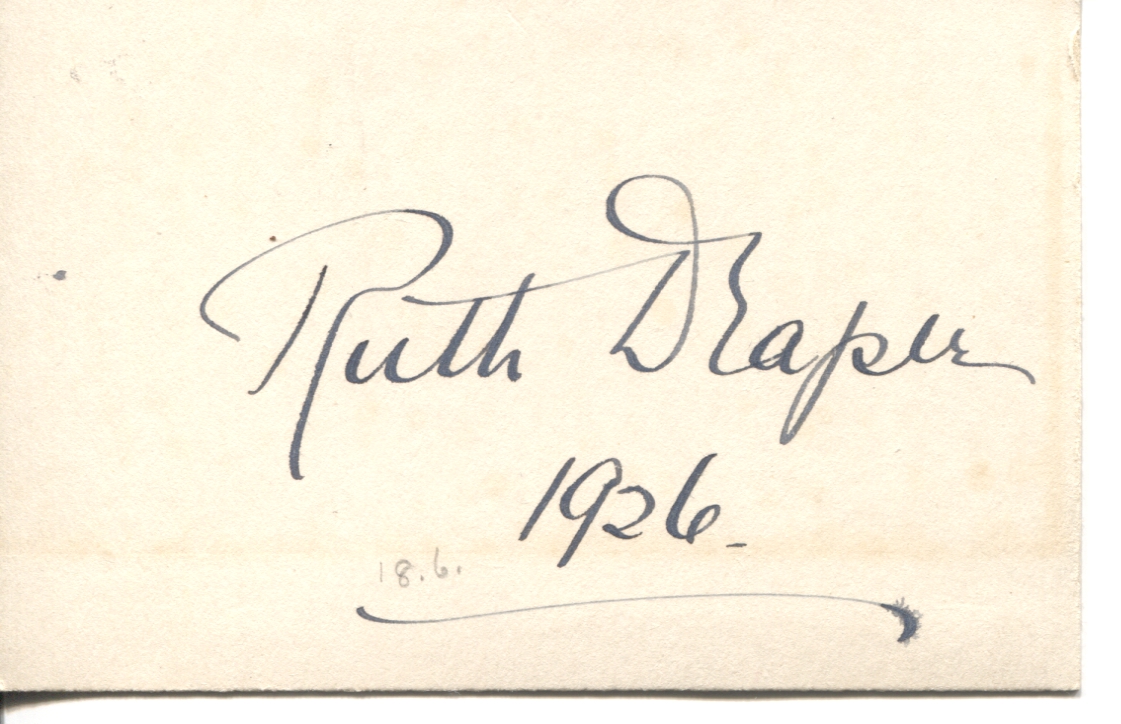 Ruth Draper
1926.
18.6.